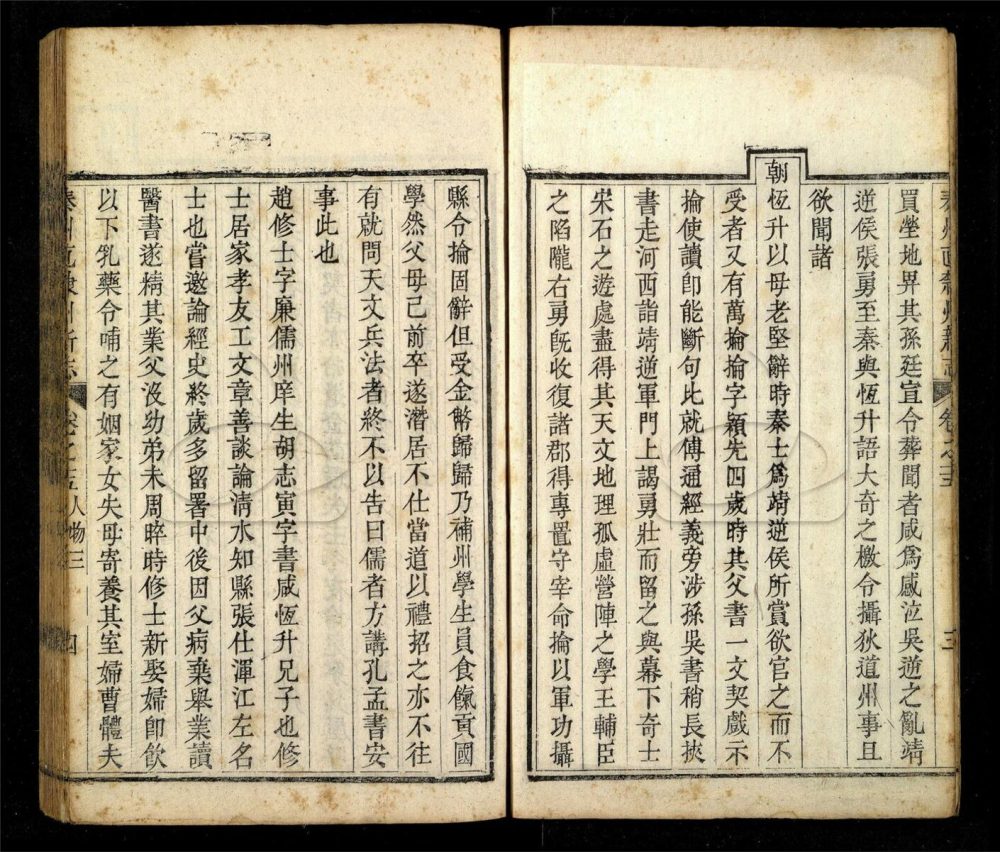 秦州直隸州新志 卷之十五 三
買塋地畀其孫廷宣令葬聞者咸爲感泣吳逆之亂靖
逆侯張勇至秦與恆升語大奇之檄令攝狄道州事且
欲聞諸
朝恆升以母老堅辭時秦士爲靖逆侯所賞欲官之而不
受者又有萬掄掄字穎先四歲時其父書一文契戲示
掄使讀即能斷句比就傅通經義旁涉孫吳書稍長挾
書走河西詣靖逆軍門上謁勇壯而留之與幕下奇士
宋石之遊處盡得其天文地理孤虛營陣之學王輔臣
之陷隴右勇旣收復諸郡得專置守宰命掄以軍功攝
縣令掄固辭但受金幣歸歸乃補州學生員食餼貢國
學然父母已前卒遂潛居不仕當道以禮招之亦不往
有就問天文兵法者終不以告曰儒者方講孔孟書安
事此也
趙修士字廉儒州庠生胡志寅字書咸恆升兄子也修
士居家孝友工文章善談論淸水知縣張仕渾江左名
士也嘗邀論經史終歲多留署中後因父病棄舉業讀
醫書遂精其業父沒幼弟未周晬時修士新娶婦卽飮
以下乳藥令哺之有姻家女失母寄養其室婦曹體夫
秦州直隸州新志 卷之十五人物三 四